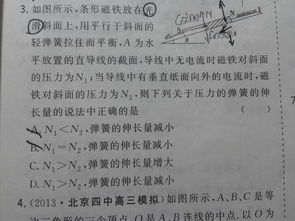 3. 如图所示,条形磁铁放在光
滑斜面上,用平行于斜面的
轻弹簧拉住而平衡,A为水
平放置的直导线的截面,导线中无电流时磁铁对斜面
的压力为N₁;当导线中有垂直纸面向外的电流时,磁
铁对斜面的压力为N₂,则下列关于压力的弹簧的伸
长量的说法中正确的是
A. N₁<N₂,弹簧的伸长量减小
B. N₁=N₂,弹簧的伸长量减小
C. N₁>N₂,弹簧的伸长量增大
D. N₁>N₂,弹簧的伸长量减小
4. (2013·北京四中高三模拟)如图所示,A、B、C是等
边三角形的三个顶点,O是A、B连线的中点.以O为